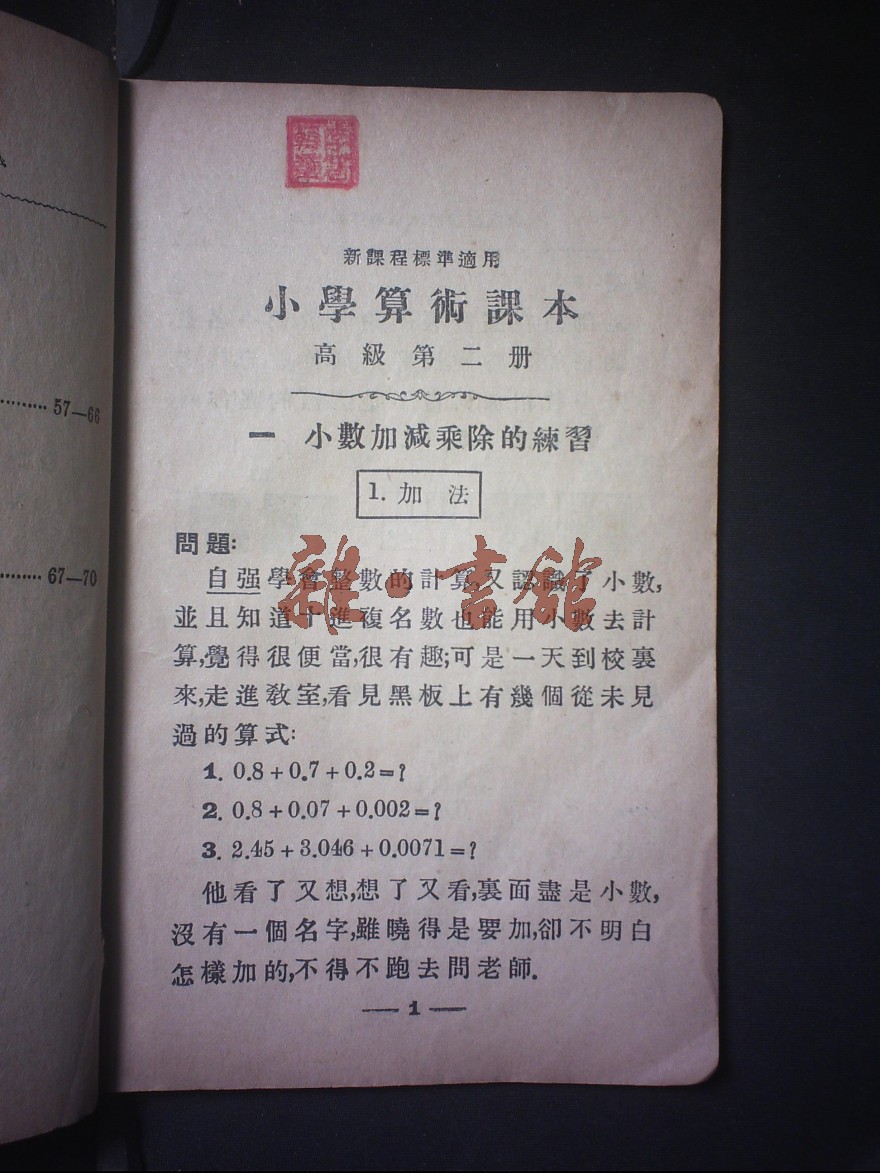 57—66
67—70
新課程標準適用
小學算術課本
高級第二册
一 小數加減乘除的練習
1. 加 法
問題:
自强學會整數的計算,又認識了小數,
並且知道十進複名數也能用小數去計
算,覺得很便當,很有趣;可是一天到校裏
來,走進教室,看見黑板上有幾個從未見
過的算式:
1. 0.8+0.7+0.2=?
2. 0.8+0.07+0.002=?
3. 2.45+3.046+0.0071=?
他看了又想,想了又看,裏面盡是小數,
沒有一個名字,雖曉得是要加,卻不明白
怎樣加的,不得不跑去問老師.
— 1 —
雜·書館